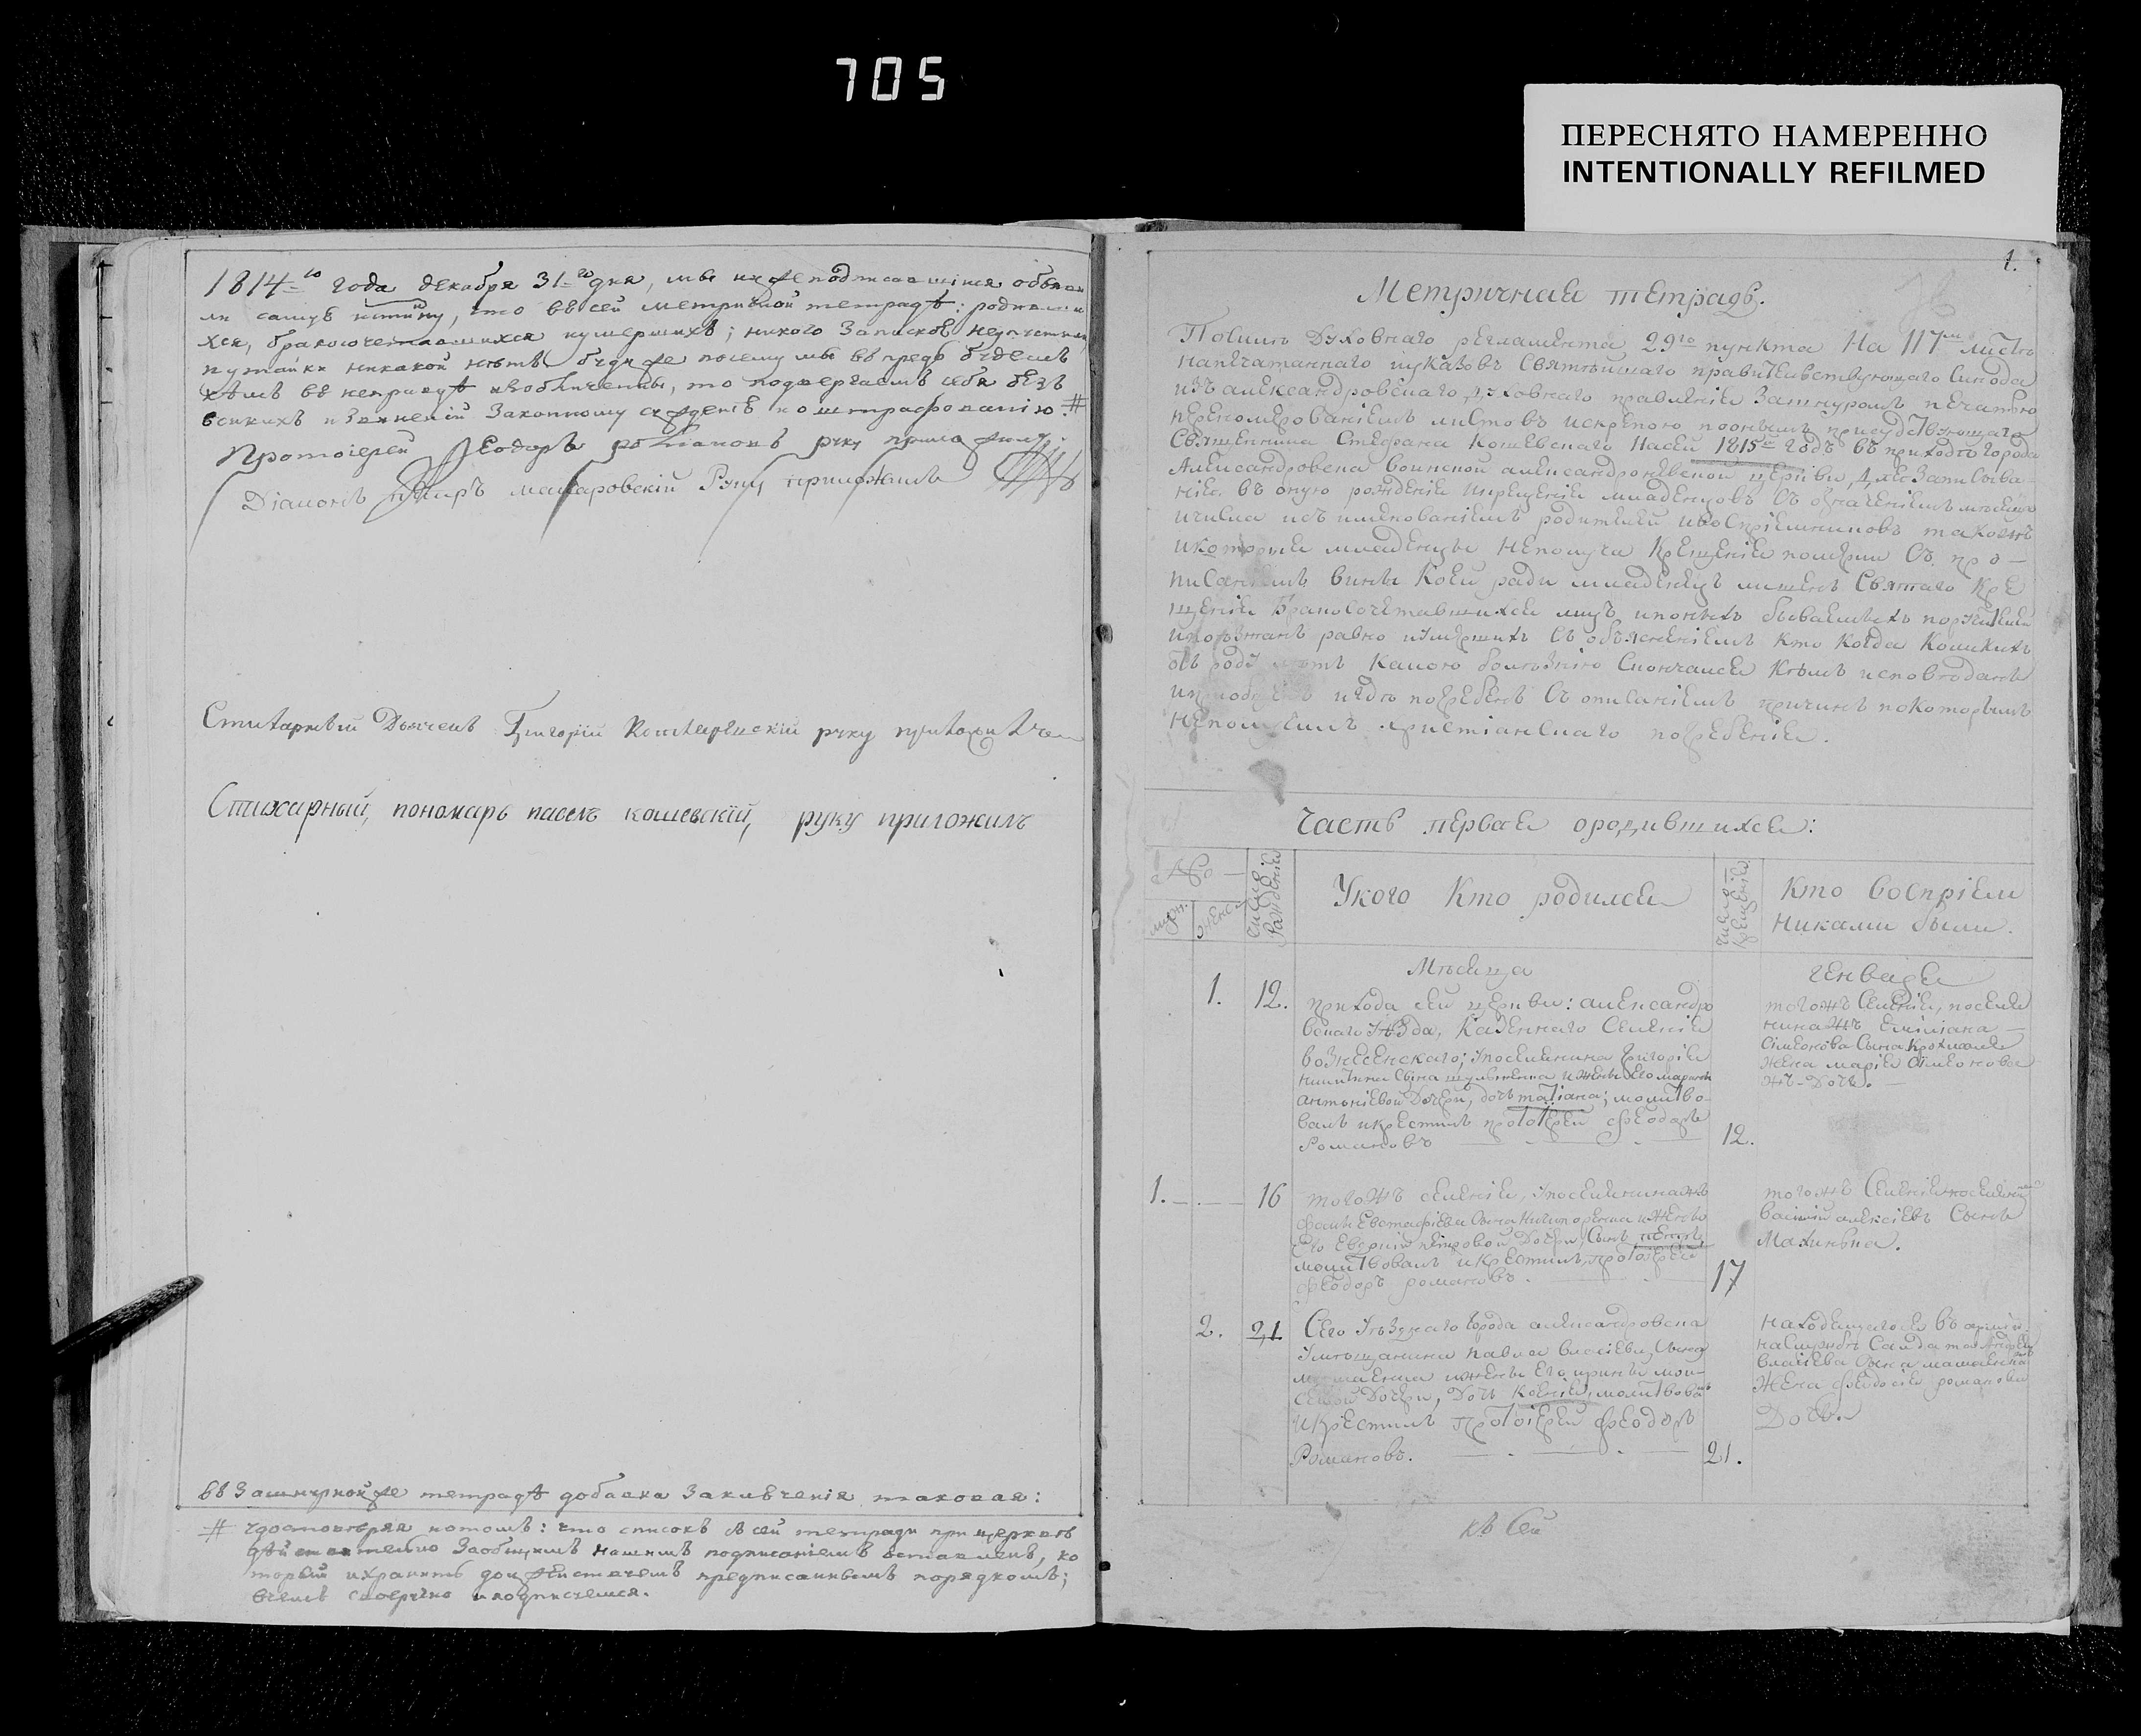 705
ПЕРЕСНЯТО НАМЕРЕННО
INTENTIONALLY REFILMED
1814-го года декабря 31-го дня, мы нижеподписавшіяся объяви
ли самую истину, что въ сей метричной тетрадѣ: родивши
хся, бракосочетавшихся иумершихъ; никого
путайки никакой нѣтъ будиже почему мы въ предь будемъ
кѣмъ въ неправдѣ изобличены, то подвергаемъ себя безъ
всякихъ извиненій Законному сужденію и оштрафованію. #
Протоіерей Ѳеодоръ романовъ руку приложилъ
Діаконъ макаровскій Руку приложилъ
Стихарный Дьячекъ Григорій руку
Стихарный, пономарь павелъ кошевскій, руку приложилъ
въ Зашнурной же тетрадѣ добавка Заключенія таковая:
# удостовѣряя впотомъ: что списокъ съ сей тетради при церквѣ
дѣйствительно Заобщимъ нашимъ подписаніемъ оставленъ, ко
торый ихранить предписаннымъ порядкомъ;
вчемъ своеручно иподписуемся.
1.
Метричная тетрадь.
Посилѣ Духовнаго регламента 29го пункта На 117м листѣ
напечатаннаго иуказовъ Святѣйшаго правительствующаго Синода
изъ александровскаго духовнаго правленія Зашнуромъ печатью
перенумерованіемъ листовъ искрепою поонымъ присудствующаго
Священника Стефана Кошевскаго Насей 1815й годъ въ приходъ города
Александровска воинской александроневской церкви, Для Записыва
нія въ оную рожденія икрещенія младенцовъ Съ означеніемъ мѣсяца
ичисла исъ именованіемъ родителей ивоспріемниковъ такожъ
икоторые младенцы Неполуча Крещенія померли Съ про-
писаніемъ вины Коей ради младенецъ лишенъ Святаго Кре
щенія Бракосочетавшихся лицъ ипонихъ бываемыхъ поручителей
равно иумершихъ Съ объясненіемъ Кто Когда Коликихъ
отъ роду лѣтъ Какою болѣзнію Скончался Кѣмъ исповѣданъ
ипріобщенъ игдѣ погребенъ Съ описаніемъ причинъ покоторымъ
Неполучилъ христіанскаго погребенія.
Часть первая ородившихся:
№
муж.
женс.
Число Рожденія
Укого Кто родился
Число Крещенія
Кто воспріем
никами были.
Мѣсяца
генваря
1. 12. прихода сей церкви: александро
вскаго уѣзда, Казеннаго Селенія
вознесенскаго; упоселянина григорія
никитина Сына и жены Его марины
антоніевой Дочери, дочь татіана; молитво-
валъ икрестилъ протоіерей Ѳеодоръ
Романовъ 12.
тогожъ Селенія, поселя
нина жъ Еміліана
Симеонова Сына
жена марія Симеонова
жъ-Дочь.
1. 16 тогожъ селенія, упоселянина жъ
фомы Евстафіева Сына и жены
Его Евдокіи петровой Дочери, Сынъ
молитвовалъ икрестилъ, протоіерей
Ѳеодоръ романовъ. 17
тогожъ Селенія поселянинъ
василій алексіевъ Сынъ
Махинька.
2. 21 Сего Уѣзднаго города александровска
Умѣщанина павла власіева Сына
ижены Его ирины мои-
сеевой Дочери, Дочь Ксенія; молитвовалъ
икрестилъ протоіерей Ѳеодоръ
Романовъ. 21.
Находящагося въ арміи
Салдата андрея
власіева Сына
жена Ѳеодосія романова
Дочь.
къ Сей